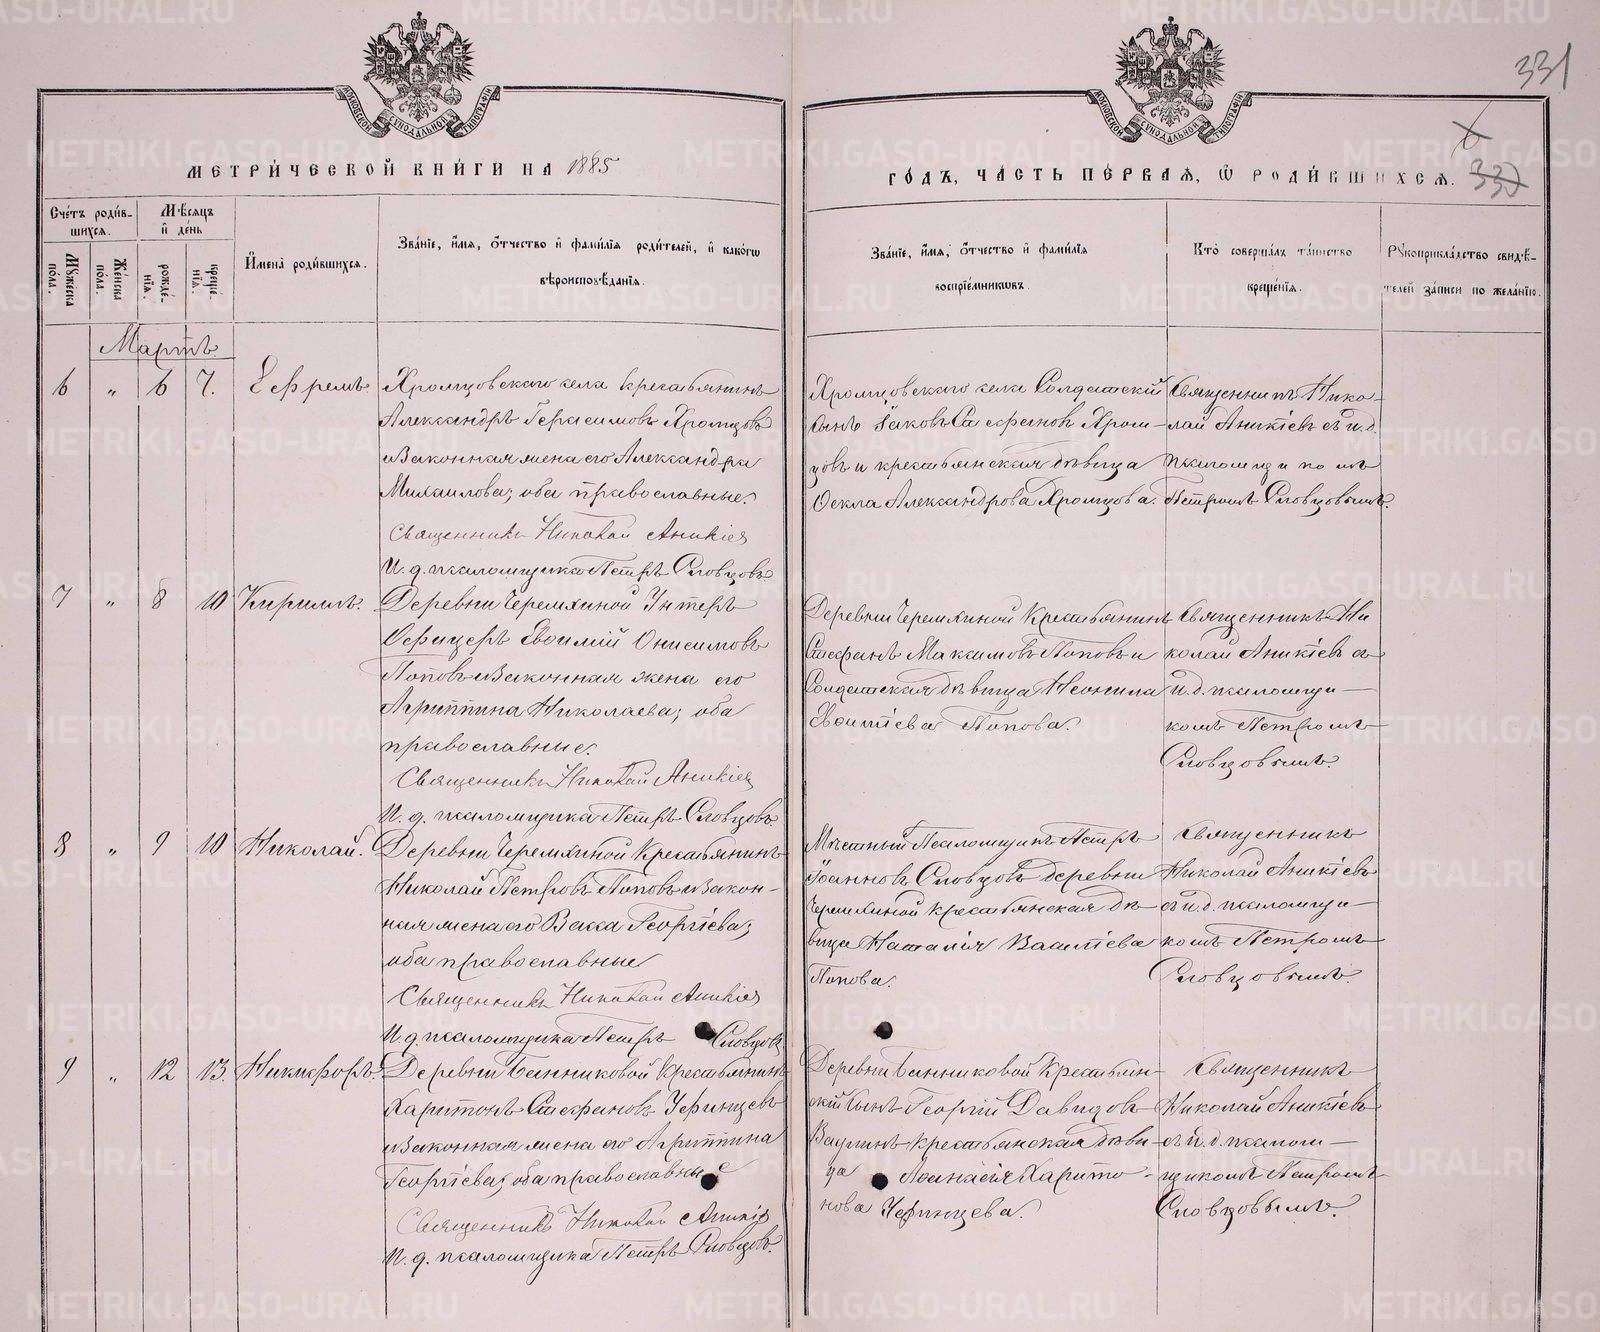 331
МЕТРИ́ЧЕСКОЙ КНИ́ГИ НА 1885
ГО́ДЪ, ЧА́СТЬ ПЕ́РВАЯ, Ѡ РОДИ́ВШИХСЯ.
332
Сче́тъ роди́в-
шихся.
Мꙋжеска
по́ла.
Же́нска
по́ла.
Мѣ́сяцъ
и҆ де́нь
рожде́-
нїя.
креще́-
нїя.
И҆мена̀ роди́вшихся.
Зва́нїе, и҆́мя, ѻ҆́тчество и҆ фами́лїя роди́телей, и҆ како́гѡ
вѣроисповѣ́данїя.
Зва́нїе, и҆́мя, ѻ҆́тчество и҆ фами́лїя
воспрїе́мникѡвъ.
Кто̀ соверша́лъ та́инство
креще́нїя.
Рꙋкоприкла́дство свидѣ́-
телей за́писи по жела́нїю.
Мартъ
6 „ 6 7. Ефремъ.
Хромцовскаго села крестьянинъ
Александръ Герасимовъ Хромцовъ
и законная жена его Александра
Михаилова; оба православные.
Священникъ Николай Аникіев
И. д. псаломщика Петръ Словцовъ
Хромцовскаго села Солдатскій
сынъ Іаковъ Стефановъ Хром-
цовъ и крестьянская дѣвица
Ѳекла Александрова Хромцова.
Священникъ Нико-
лай Аникіевъ съ и. д.
псаломщикомъ
Петромъ Словцовымъ.
7 „ 8 10 Кириллъ.
Деревни Черемхиной Унтеръ
Офицеръ Евѳимій Онисимовъ
Поповъ и законная жена его
Агриппина Николаева; оба
православные.
Священникъ Николай Аникіев
И. д. псаломщика Петръ Словцовъ.
Деревни Черемхиной Крестьянинъ
Стефанъ Максимовъ Поповъ и
Солдатская дѣвица Неонила
Евѳиміева Попова.
Священникъ Ни
колай Аникіевъ съ
и. д. псаломщи-
комъ Петромъ
Словцовымъ.
8 „ 9 10 Николай.
Деревни Черемхиной Крестьянинъ
Николай Петровъ Поповъ и закон-
ная жена его Васса Георгіева;
оба православные
Священникъ Николай Аникіев
И. д. псаломщика Петръ Словцовъ
Мѣстный Псаломщикъ Петръ
Іоанновъ Словцовъ деревни
Черемхиной крестьянская дѣ-
вица Наталія Василіева
Попова.
Священникъ
Николай Аникіевъ
съ и. д. псаломщи-
комъ Петромъ
Словцовымъ.
9 „ 12 13. Никифоръ.
Деревни Банниковой Крестьянинъ
Харитонъ Стефановъ Уфинцевъ
и законная жена его Агриппина
Георгіева; оба православные
Священникъ Николай Аникіев
И. д. псаломщика Петръ Словцовъ.
Деревни Банниковой Крестьян-
скій сынъ Георгій Давидовъ
Ваулинъ крестьянская дѣви-
ца Аѳанасія Харито-
нова Уфинцева.
Священникъ
Николай Аникіевъ
съ и. д. псаломщи-
щикомъ Петромъ
Словцовымъ.
METRIKI.GASO-URAL.RU